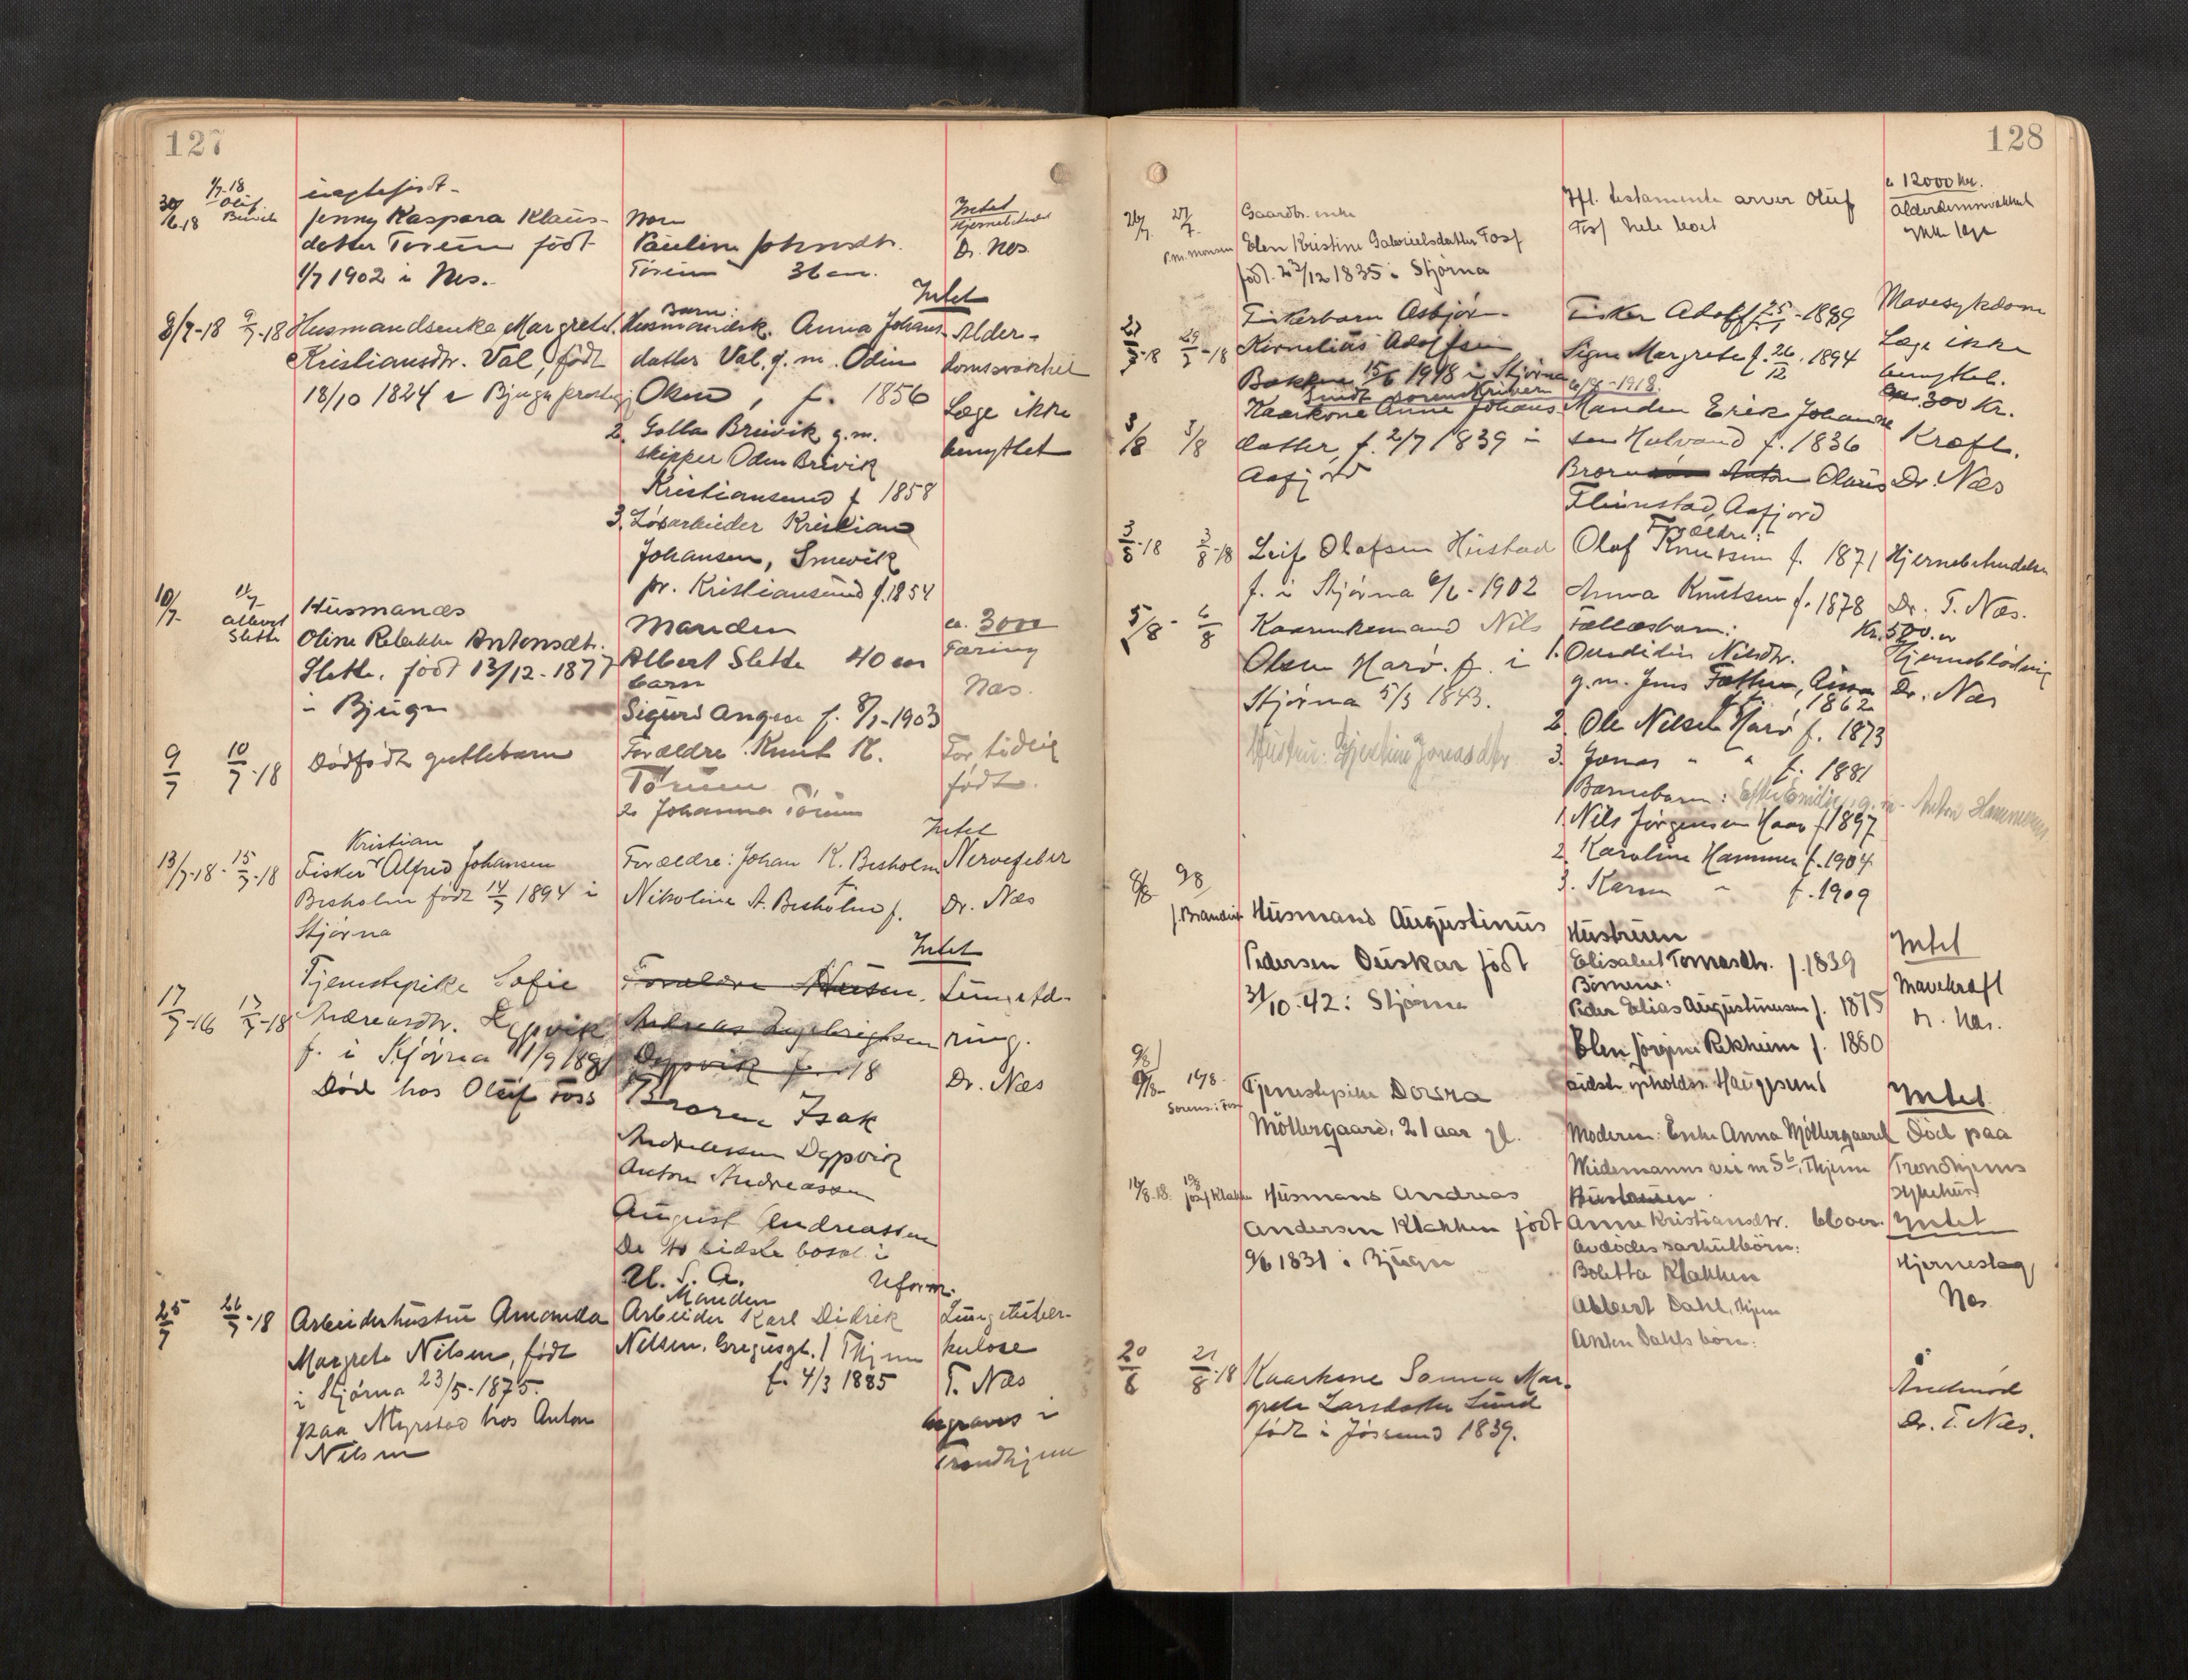 127
30/6.18
1/7-18
Oluf
ugtefødt-
Jenny Kaspara Klaus-
datter Tørum født
1/7 1902 i Nes.
Mor
Pauline Johnsdtr.
Tørum 36 aar.
Intet
Hjernebetændelse
Dr. Nes
8/7-18
9/7-18
Husmandsenke Margrete
Kristiansdtr. Val, født
18/10 1824 i Bjugn
Barn:
Husmandsk. Anna Johans
datter Val. g. m. Odin
Olsen, f. 1856
2. Golla Brevik g.m.
skipper Odin Brevik
Kristiansund f 1858
3. Løsarbeider Kristian
Johansen, Smevik
pr. Kristiansund f. 1854
Intet
Alder-
domssvakhet
Læge ikke
benyttet
10/7-
11/7-
Albert
Slette
Husmands
Oline Rebekka Antonsdtr.
Slette, født 13/12-1877
i Bjugn
Manden
Albert Slette 40 aar
barn
Sigurd Angen f. 8/1-1903
ca. 3000
Tæring
Næs.
9/7
10/7-18
Dødfødt guttebarn
Forældre Knut K.
Tørum
2. Johanna Tørum
For tidlig
født.
13/7-18-
15/7-18
Kristian
Fisker Alfred Johansen
Besholm født 14/7 1894 i
Stjørna
Forældre: Johan K. Besholm
Nikoline A. Besholm f.
Intet
Nervefeber
Dr. Næs
17/7-16
17/7-18
Tjenestepike Sofie
Andreasdtr. Dypvik
f. i Stjørna 11/9 189
Død hos Oluf Foss
Forældre
Andreas Ingebrigtsen
Dypvik f. 18
Broren Isak
Andreassen Dypvik
Anton Andreassen
August Andreassen
De to sidste bosat i
U. S. A.
Intet
Lungetæ-
ring.
Dr. Næs
25/7
26/7-18
Arbeiderhustru Amanda
Margrete Nilsen, født
i Stjørna 23/5-1875.
paa Myrstad hos Anton
Nilsen
Manden
Arbeider Karl Didrik
Nilsen. 1 Thjem
f. 4/3 1885
Uform.
Lungetuber-
kulose
T. Næs
begraves i
Trondhjem
128
26/7.
27/7.
P.m. Monsen
Gaardbr. enke
Elen Kristine Gabrielsdatter Foss
født 23/12 1835 i Stjørna
Ifl. testamente arver Oluf
Foss hele boet
c 12000 kr.
Alderdomssvakhet
ikke læge
27/7-18
29/7-18
Fiskerbarn Asbjørn
Kornelius Adolfsen
Bakken 15/6 1918 i Stjørna
Fisker Adolf f 25/1-1889
Signe Margrete f. 26/12. 1894
Mavesykdom
Læge ikke
benyttet.
3/8
3/8
Sendt sorenskriveren 6/8-1918.
Kaarkone Anne Johans
datter, f. 2/7 1839 i
Aafjord
Manden Erik Johanne
sen Halvand f. 1836
Brorn Anton Olaus
Flennstad, Aafjord
300 Kr.
Kræft.
Dr. Næs
3/8-18
3/8-18
Leif Olafsen Hustad
f. i Stjørna 6/6-1902
Forældre:
Olaf Knutsen f. 1871
Anna Knutsen f. 1878
Hjernebetændelse
Dr. T. Næs.
5/8-
6/8
Kaarenkemand Nils
Olsen Harø. f. i
Stjørna 5/3 1843.
Hustru: Jonasdtr
Fællesbarn:
1. Nilsdtr.
g.m. Jens
f. 1862
2. Ole Nilsen Harø f. 1873
3. Jonas " " f. 1881
Barnebarn: Emilie, g. m. Anton Hammer
1. Nils Jørgensen Harø f 1897
2. Karoline Hammer f. 1904
3. Karen " f. 1909
Kr. 500.
Hjerneblødning
Dr. Næs
8/8
9/8
Husmand Augustinus
Pedersen Duskar født
31/10. 42: Stjørna
Hustruen
Elisabet Tomasdtr. f. 1839
Børnene:
Peder Elias Augustinusen f. 1875
Elen Jørgine Rekheim f. 1880
sidste opholdss. Haugesund
Intet
Mavekræft
Dr. Næs.
9/8
14/8.
Tjenestepike Dovra
Möllergaard, 21 aar gl.
Moderen: Enke Anna Möllergaard
Weidemanns vei nr 5b, Thjem
Intet
Død paa
Trondhjems
sykehus
14/8.18.
Josef Klakken
Husmand Andreas
Andersen Klakken født
9/6 1831 i Bjugn
Hustruen
Anne Kristiansdtr. 66 aar.
Avdødes særkulbörn:
Boletta Klakken
Albert Dahl, Thjem
Anton Dahls börn:
Intet
Hjerneslag
Næs.
20/8
21/8-18
Kaarkone Sanna Mar-
grete Larsdatter Lund
født i Jøssund 1839.
Andenød
Dr. T. Næs.